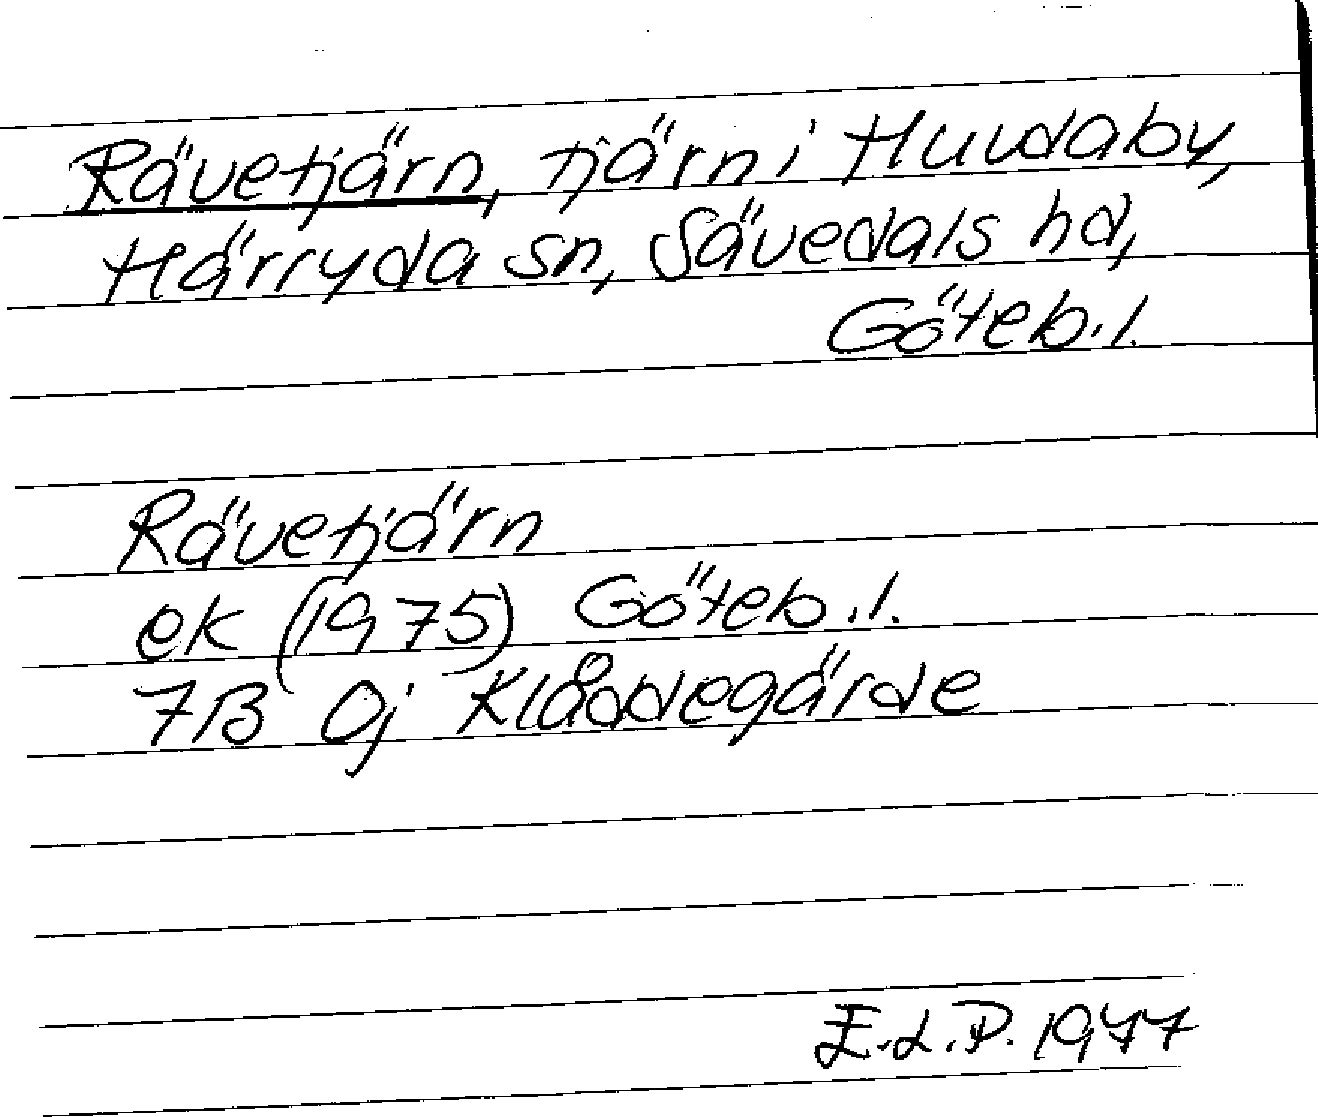 Rävetjärn, tjärn i Huvdaby,
Härryda sn, Sävedals hd,
Göteb.l.
Rävetjärn
ek (1975) Göteb.l.
7B 0j Klåddegärde
E.L.P. 1977